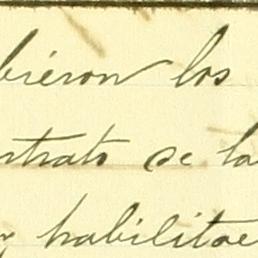 bieron los
ntrato se la
y habilitae